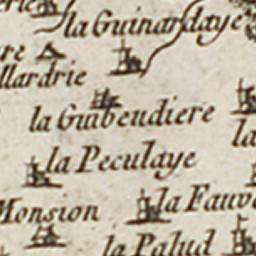 la Guinardaye
llardrie
la Guibeudiere
la
la Peculaye
la Fauv
Monsion
la Palud